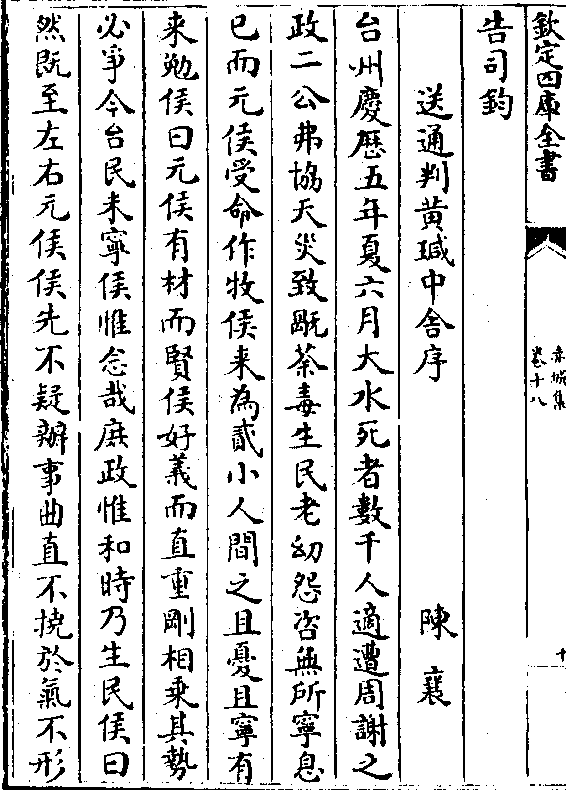 欽定四庫全書
赤城集
卷十八
十
告司鈞
送通判黄瑊中舍序
陳襄
台州慶歴五年夏六月大水死者數千人適遭周謝之
政二公弗協天災致毆荼毒生民老幼怨咨無所寧息
已而元侯受命作牧侯来為貳小人間之且憂且寧有
来勉侯曰元侯有材而賢侯好義而直重剛相乗其勢
必爭今台民未寧侯惟念哉庶政惟和時乃生民侯曰
然既至左右元侯侯先不疑辦事曲直不撓於氣不形